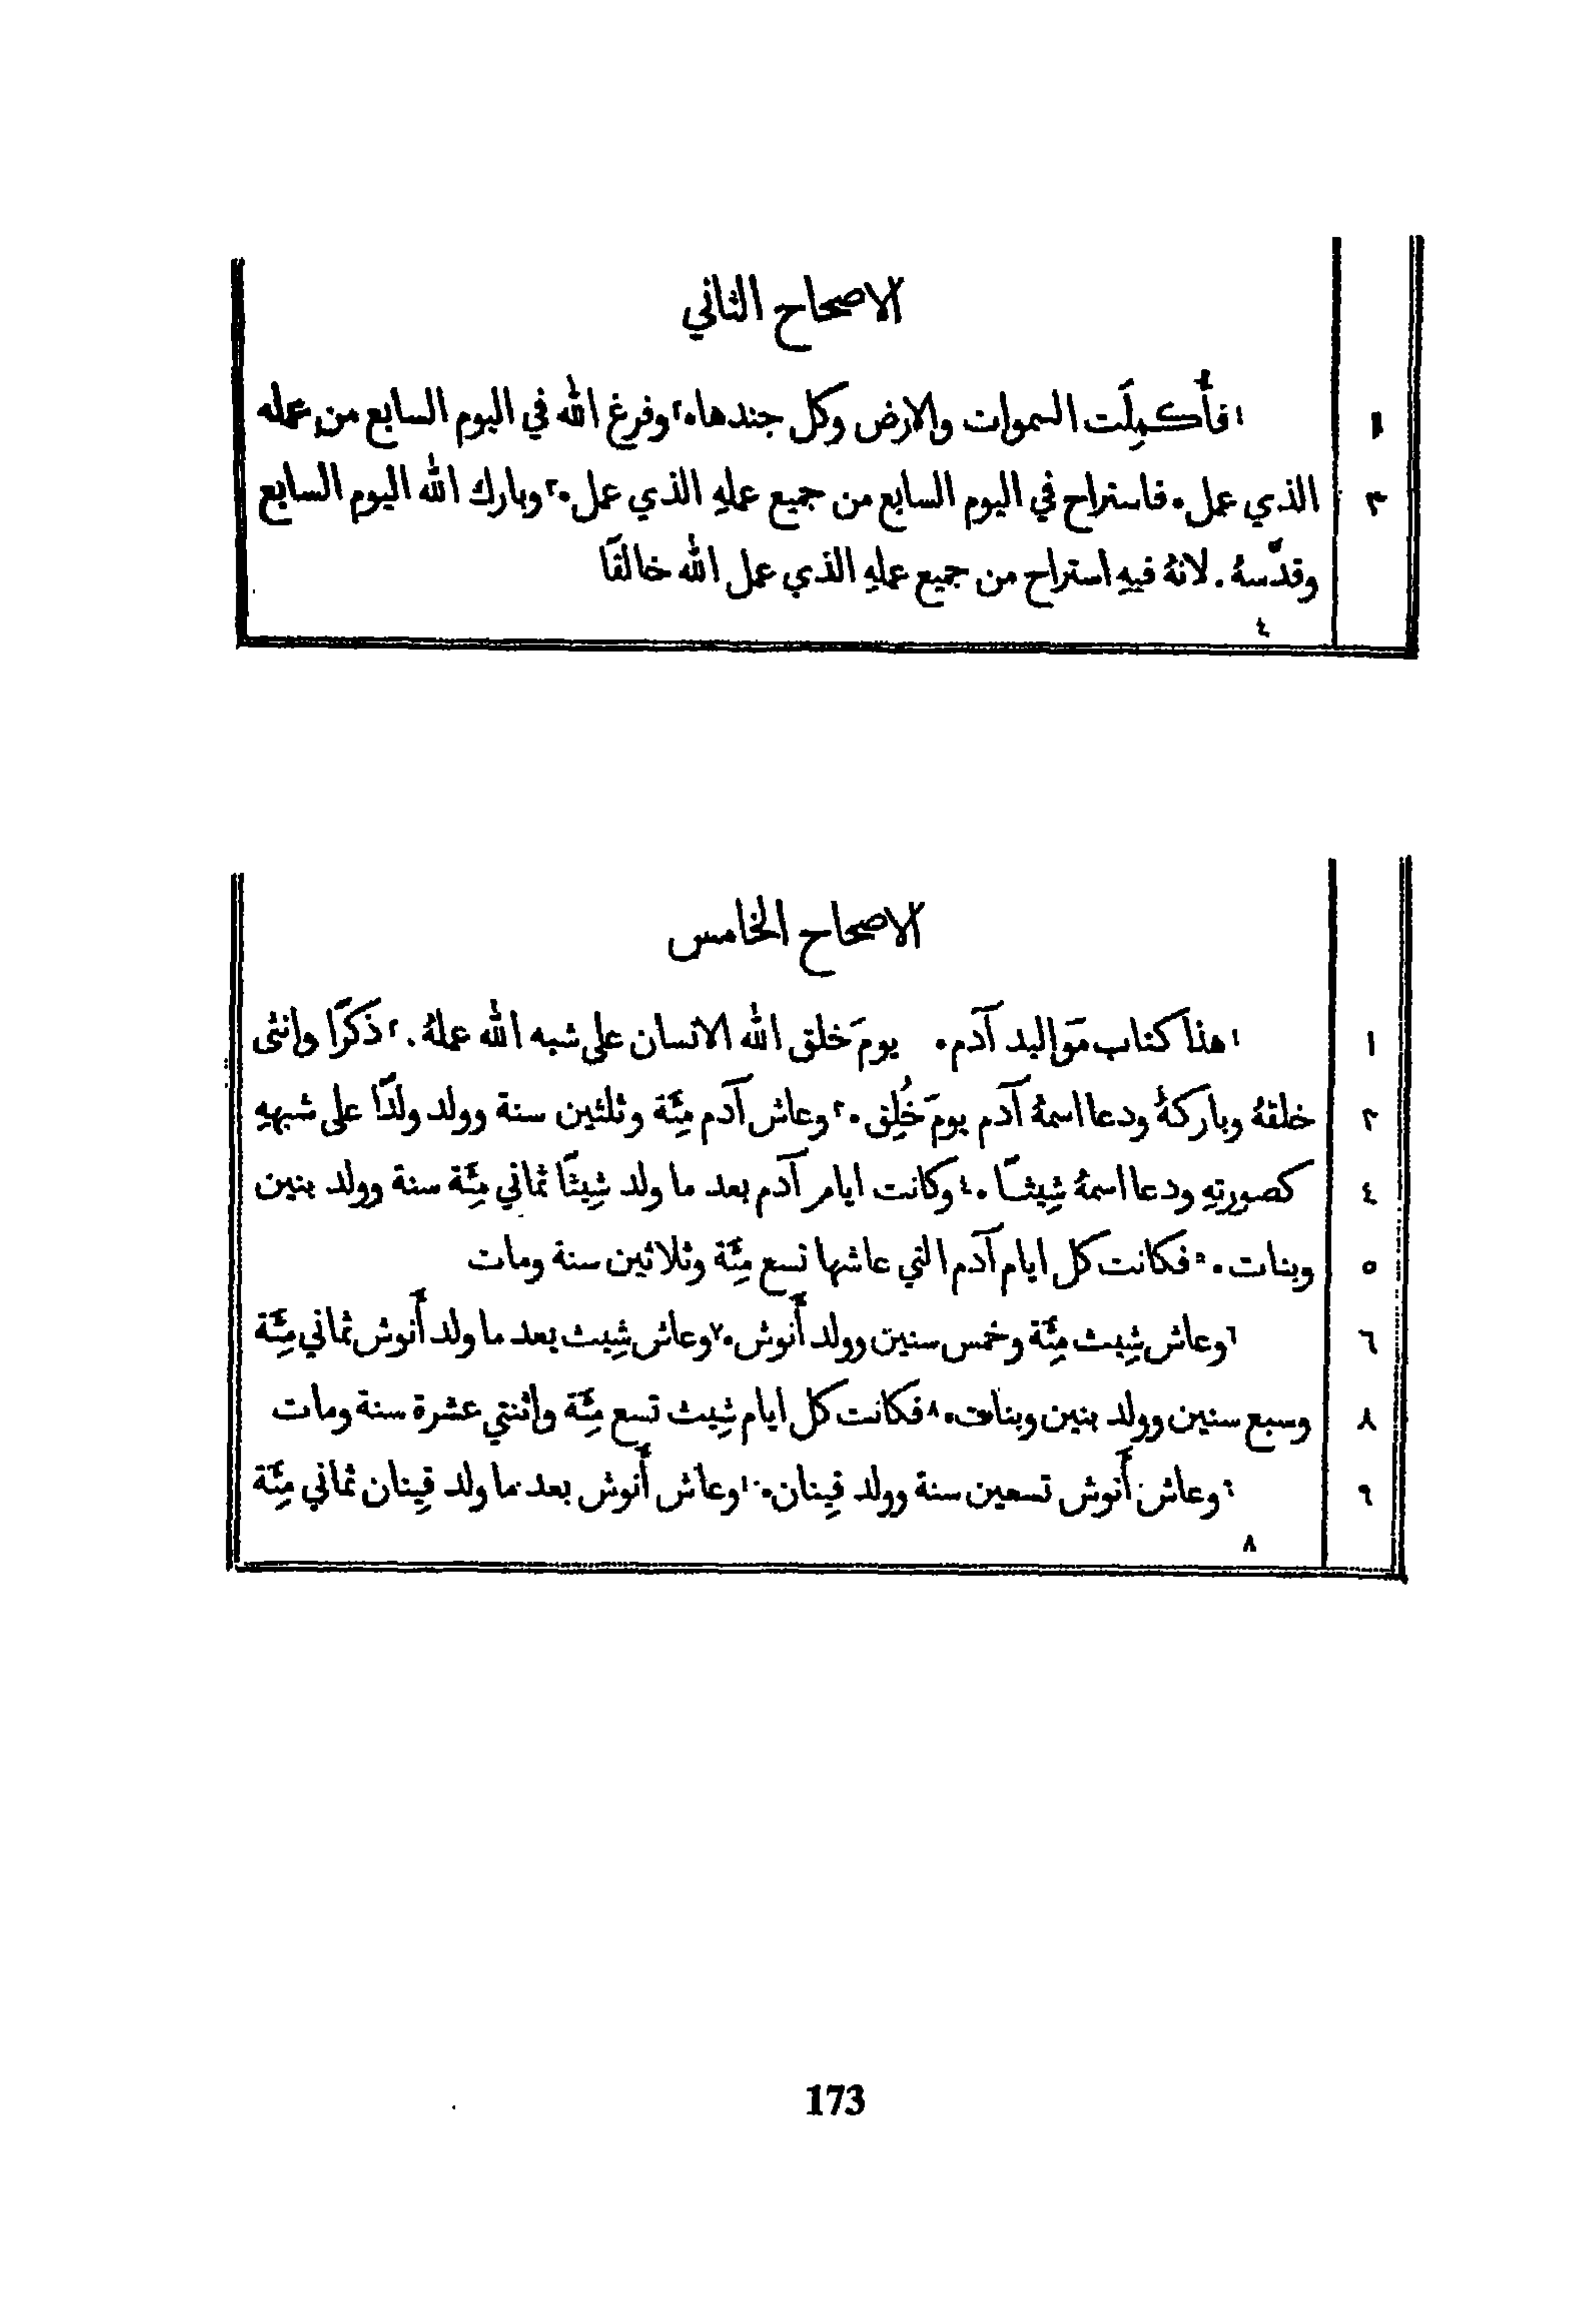 الاصحاح الثاني
١ فأُكمِلَت السموات والارض وكل جندها. ٢ وفرغ الله في اليوم السابع من عمله
١
الذي عمل. فاستراح في اليوم السابع من جميع عملهِ الذي عمل. ٣ وبارك الله اليوم السابع
٣
وقدَّسهُ. لانهُ فيهِ استراح من جميع عملهِ الذي عمل الله خالقًا
٤
الاصحاح الخامس
١ هذا كتاب مَواليد آدم. يومَ خلق الله الانسان على شبه الله عملهُ. ٢ ذَكَرًا وانثى
١
خلقهُ وباركهُ ودعا اسمهُ آدم يومَ خُلِق. ٣ وعاش آدم مِئَة وثلثين سنة وولد ولدًا على شبههِ
٣
كصورتهِ ودعا اسمهُ شِيثًا. ٤ وكانت ايام آدم بعد ما ولد شِيثًا ثماني مِئَة سنة وولد بنين
٤
وبنات. ٥ فكانت كل ايام آدم التي عاشها تسع مِئَة وثلاثين سنة ومات
٥
٦ وعاش شِيث مِئَة وخمس سنين وولد أَنوش. ٧ وعاش شِيث بعد ما ولد أَنوش ثماني مِئَة
٦
وسبع سنين وولد بنين وبنات. ٨ فكانت كل ايام شِيث تسع مِئَة واثنتي عشرة سنة ومات
٨
٩ وعاش أَنوش تسعين سنة وولد قِينان. ١٠ وعاش أَنوش بعد ما ولد قِينان ثماني مِئَة
٩
٨
173